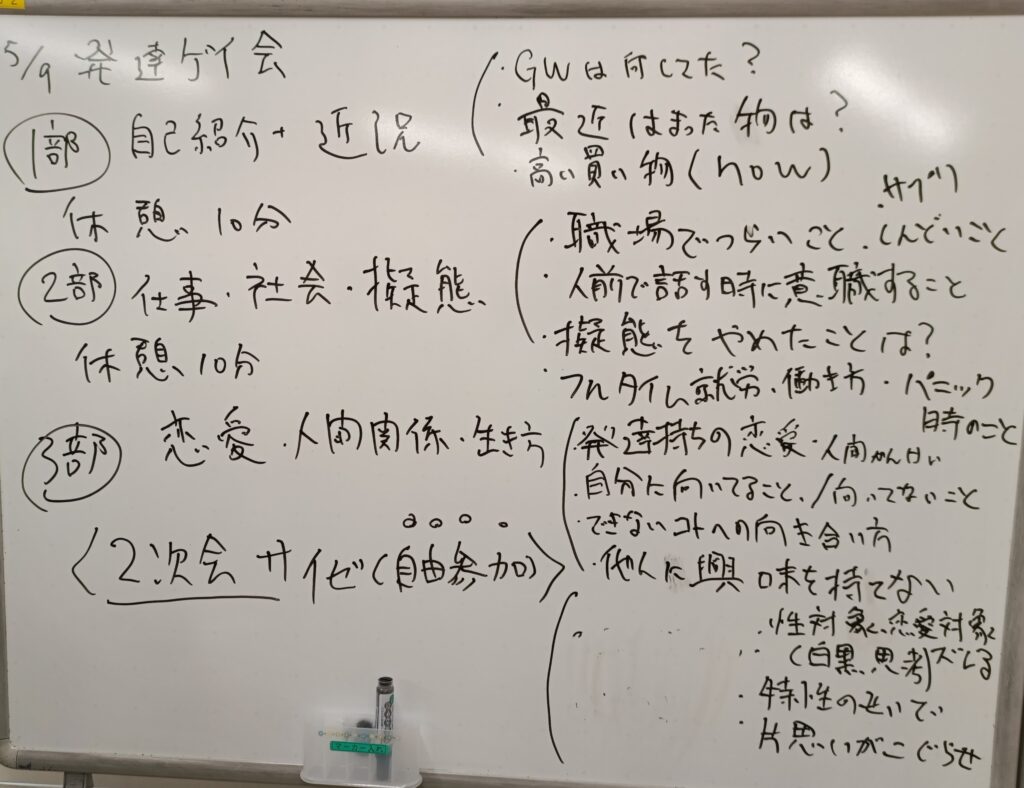 5/9 発達ゲイ会
1部 自己紹介+近況
休憩 10分
2部 仕事・社会・擬態
休憩 10分
3部 恋愛・人間関係・生き方
〈2次会 サイゼ(自由参加)〉
・GWは何してた?
・最近はまった物は?
・高い買い物(now)
・サプリ
・職場でつらいこと・しんどいこと
・人前で話す時に意職すること
・擬態をやめたことは?
・フルタイム就労・働き方・パニック
時のこと
・発達持ちの恋愛・人間かんけい
・自分に向いてること、/向いてないこと
・できないコトへの向き合い方
・他人に興味を持てない
・性対象、恋愛対象
(白黒思考)ズレる
・特性のせいで
・片思いがこじらせ
マーカー入れ